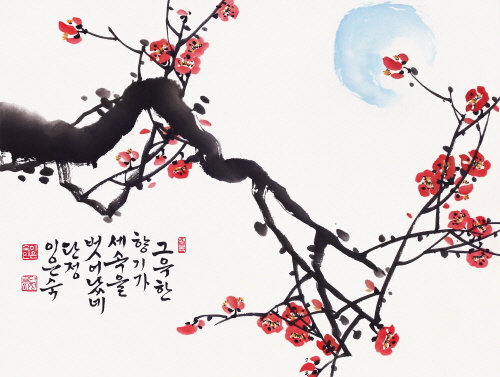 그윽한
향기가
세속을
벗어났네
단정
임은숙